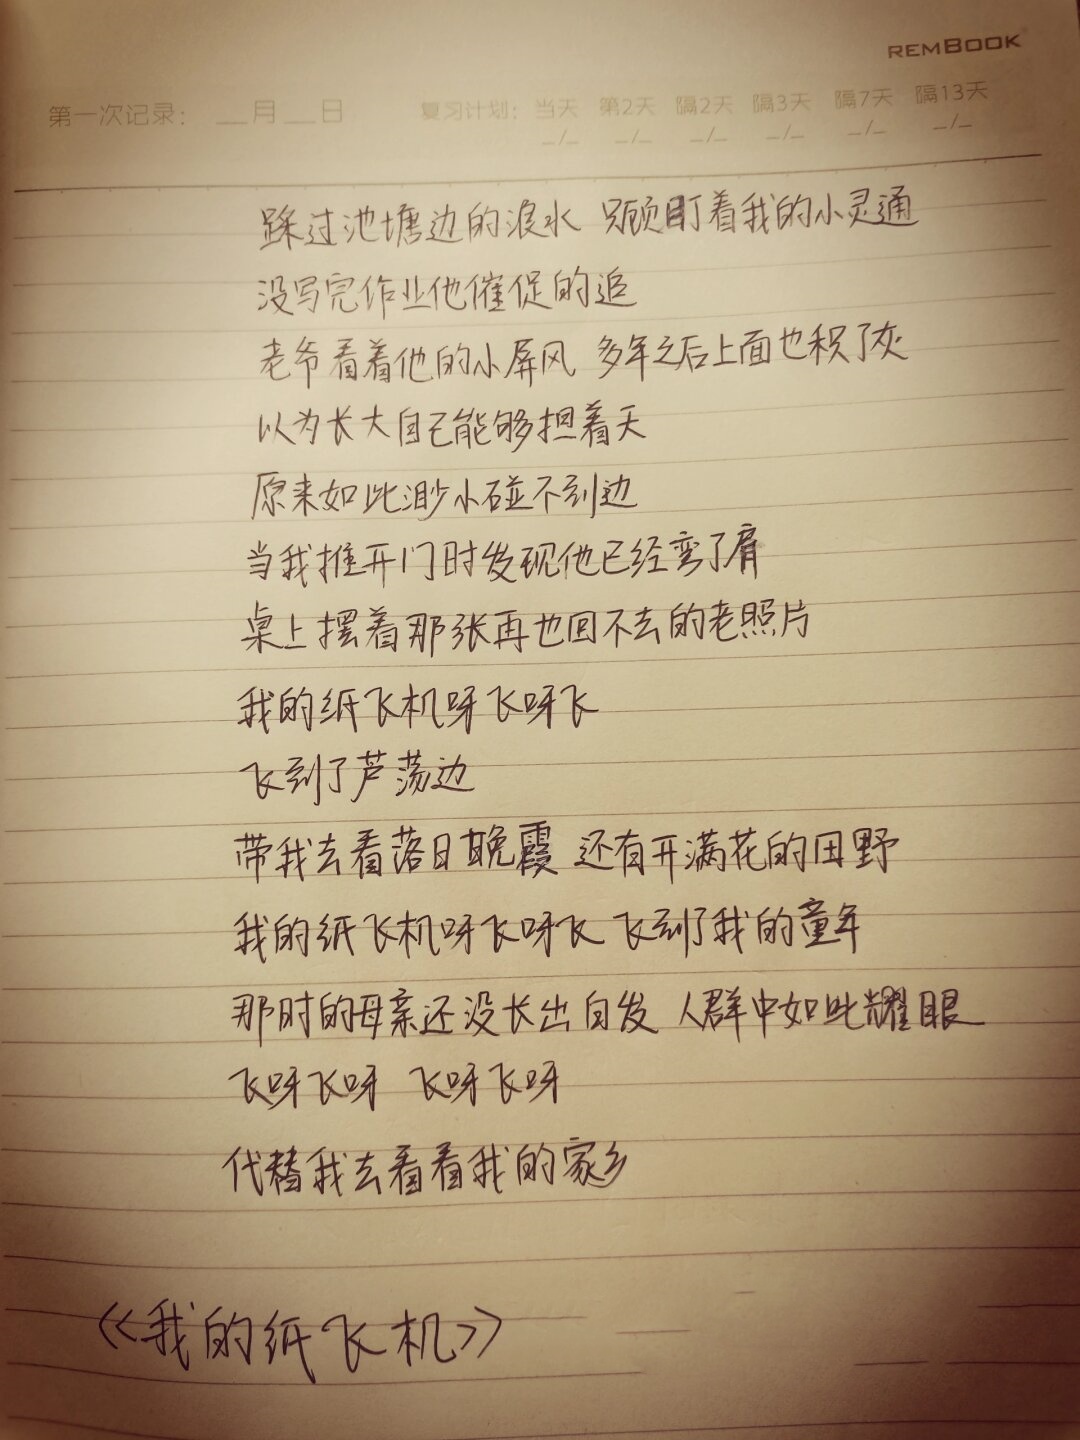 REMBOOK
第一次记录： __月__日 复习计划：当天 第2天 隔2天 隔3天 隔7天 隔13天
_/_ _/_ _/_ _/_ _/_ _/_
踩过池塘边的浪水 只顾盯着我的小灵通
没写完作业他催促的追
老爷看着他的小屏风 多年之后上面也积了灰
以为长大自己能够担着天
原来如此渺小碰不到边
当我推开门时发现他已经弯了肩
桌上摆着那张再也回不去的老照片
我的纸飞机呀飞呀飞
飞到了芦荡边
带我去看落日晚霞 还有开满花的田野
我的纸飞机呀飞呀飞 飞到了我的童年
那时的母亲还没长出白发 人群中如此耀眼
飞呀飞呀 飞呀飞呀
代替我去看看我的家乡
《我的纸飞机》